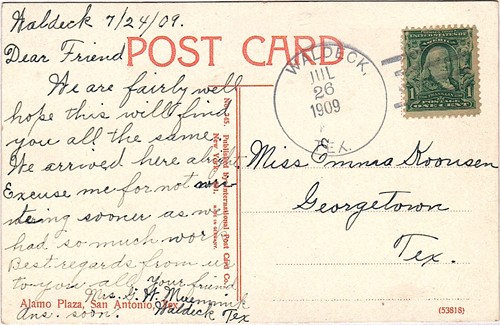 Waldeck 7/24/09.
Dear Friend
POST CARD
We are fairly well
hope this will find
you all the same.
We arrived here
Excuse me for not wri
teing sooner as we
had so much work
Best regards from us
to you all Your friend
Mrs. G. H.
Waldeck Tex
Ans. soon.
Alamo Plaza, San Antonio, Tex.
Published by International Post Card Co.
New York
WALDECK,
JUL
26
1909
TEX.
1
POSTAGE
ONE CENT
1
Miss Emma
Georgetown
Tex.
(53818)